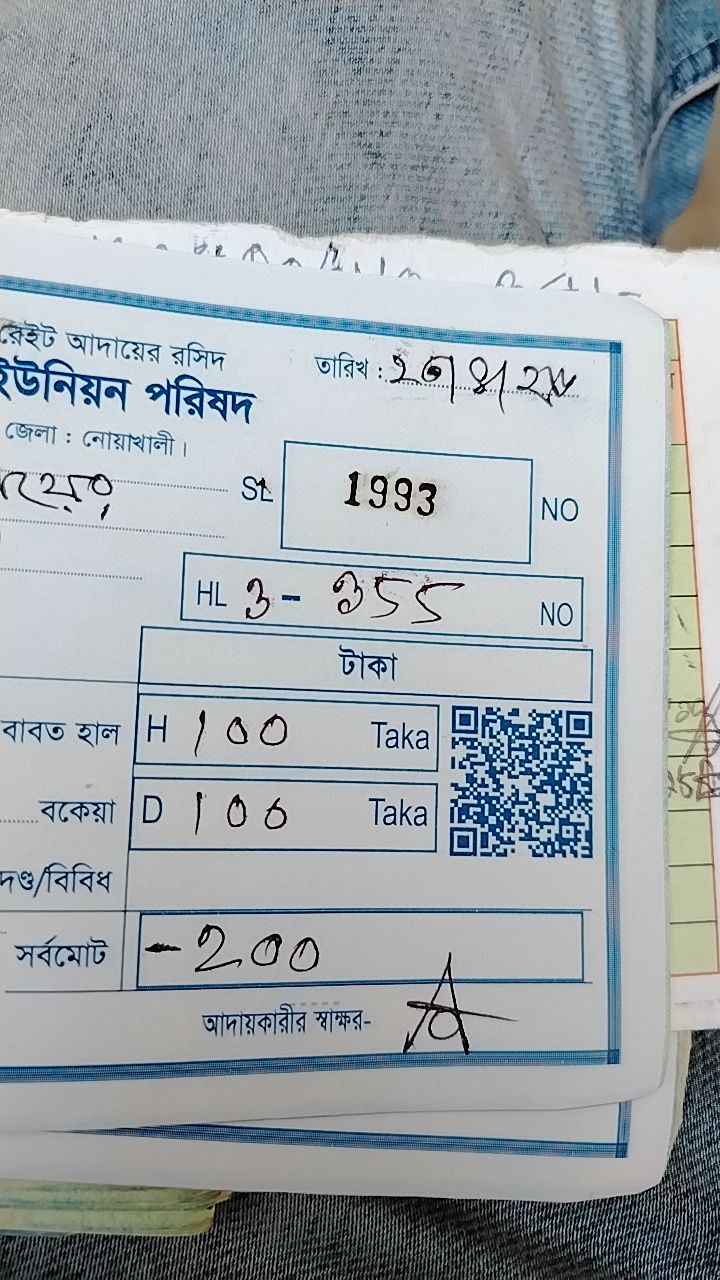 রেইট আদায়ের রসিদ
ইউনিয়ন পরিষদ
তারিখ :
জেলা : নোয়াখালী।
SL 1993 NO
HL 3 - 355 NO
টাকা
বাবত হাল H 100 Taka
বকেয়া D 100 Taka
দণ্ড/বিবিধ
সর্বমোট - 200
আদায়কারীর স্বাক্ষর-